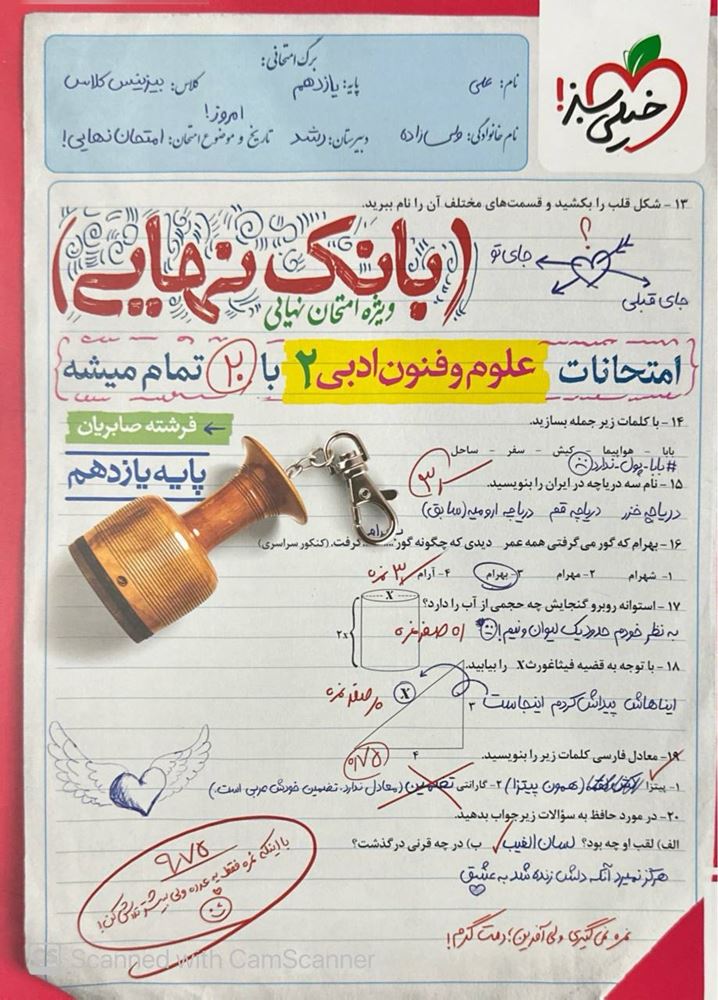 خیلی سبز!
برگ امتحانی:
نام: علی
پایه: یازدهم
کلاس: بیزینس کلاس
نام خانوادگی: ولی‌زاده
دبیرستان: رشد
تاریخ و موضوع امتحان: امروز! امتحان نهایی!
۱۳- شکل قلب را بکشید و قسمت‌های مختلف آن را نام ببرید.
؟
جای تو
جای قبلی
(بانک نهایی)
ویژه امتحان نهایی
امتحانات علوم و فنون ادبی ۲ با ۲۰ تمام میشه
← فرشته صابریان
پایه یازدهم
۱۴- با کلمات زیر جمله بسازید.
بابا - هواپیما - کیش - سفر - ساحل
#بابا_پول_ندارد
۱۵- نام سه دریاچه در ایران را بنویسید.
۳
دریاچه خزر دریاچه قم دریاچه ارومیه (سابق)
۱۶- بهرام که گور می‌گرفتی همه عمر دیدی که چگونه گور بهرام گرفت. (کنکور سراسری)
۱- شهرام ۲- مهرام ۳- بهرام ۴- آرام
۳ نمره
۱۷- استوانه روبرو گنجایش چه حجمی از آب را دارد؟
X
2x
به نظر خودم حدود یک لیوان و نیم!
صفر نمره
۱۸- با توجه به قضیه فیثاغورث X را بیابید.
ایناهاش پیداش کردم اینجاست
X
۳
۴
صفر نمره
۰/۷۵
۱۹- معادل فارسی کلمات زیر را بنویسید.
۱- پیتزا (همون پیتزا) ۲- گارانتی تضمین (معادل ندارد. تضمین خودش عربی است.)
۲۰- در مورد حافظ به سؤالات زیر جواب بدهید.
الف) لقب او چه بود؟ لسان الغیب ب) در چه قرنی درگذشت؟
هرگز نمیرد آنکه دلش زنده شد به عشق
۹/۷۵
با اینکه نمره فقط یه عدده ولی بیشتر تلاش کن!
نمره نمی‌گیری ولی آفرین؛ دمت گرم!
CS Scanned with CamScanner